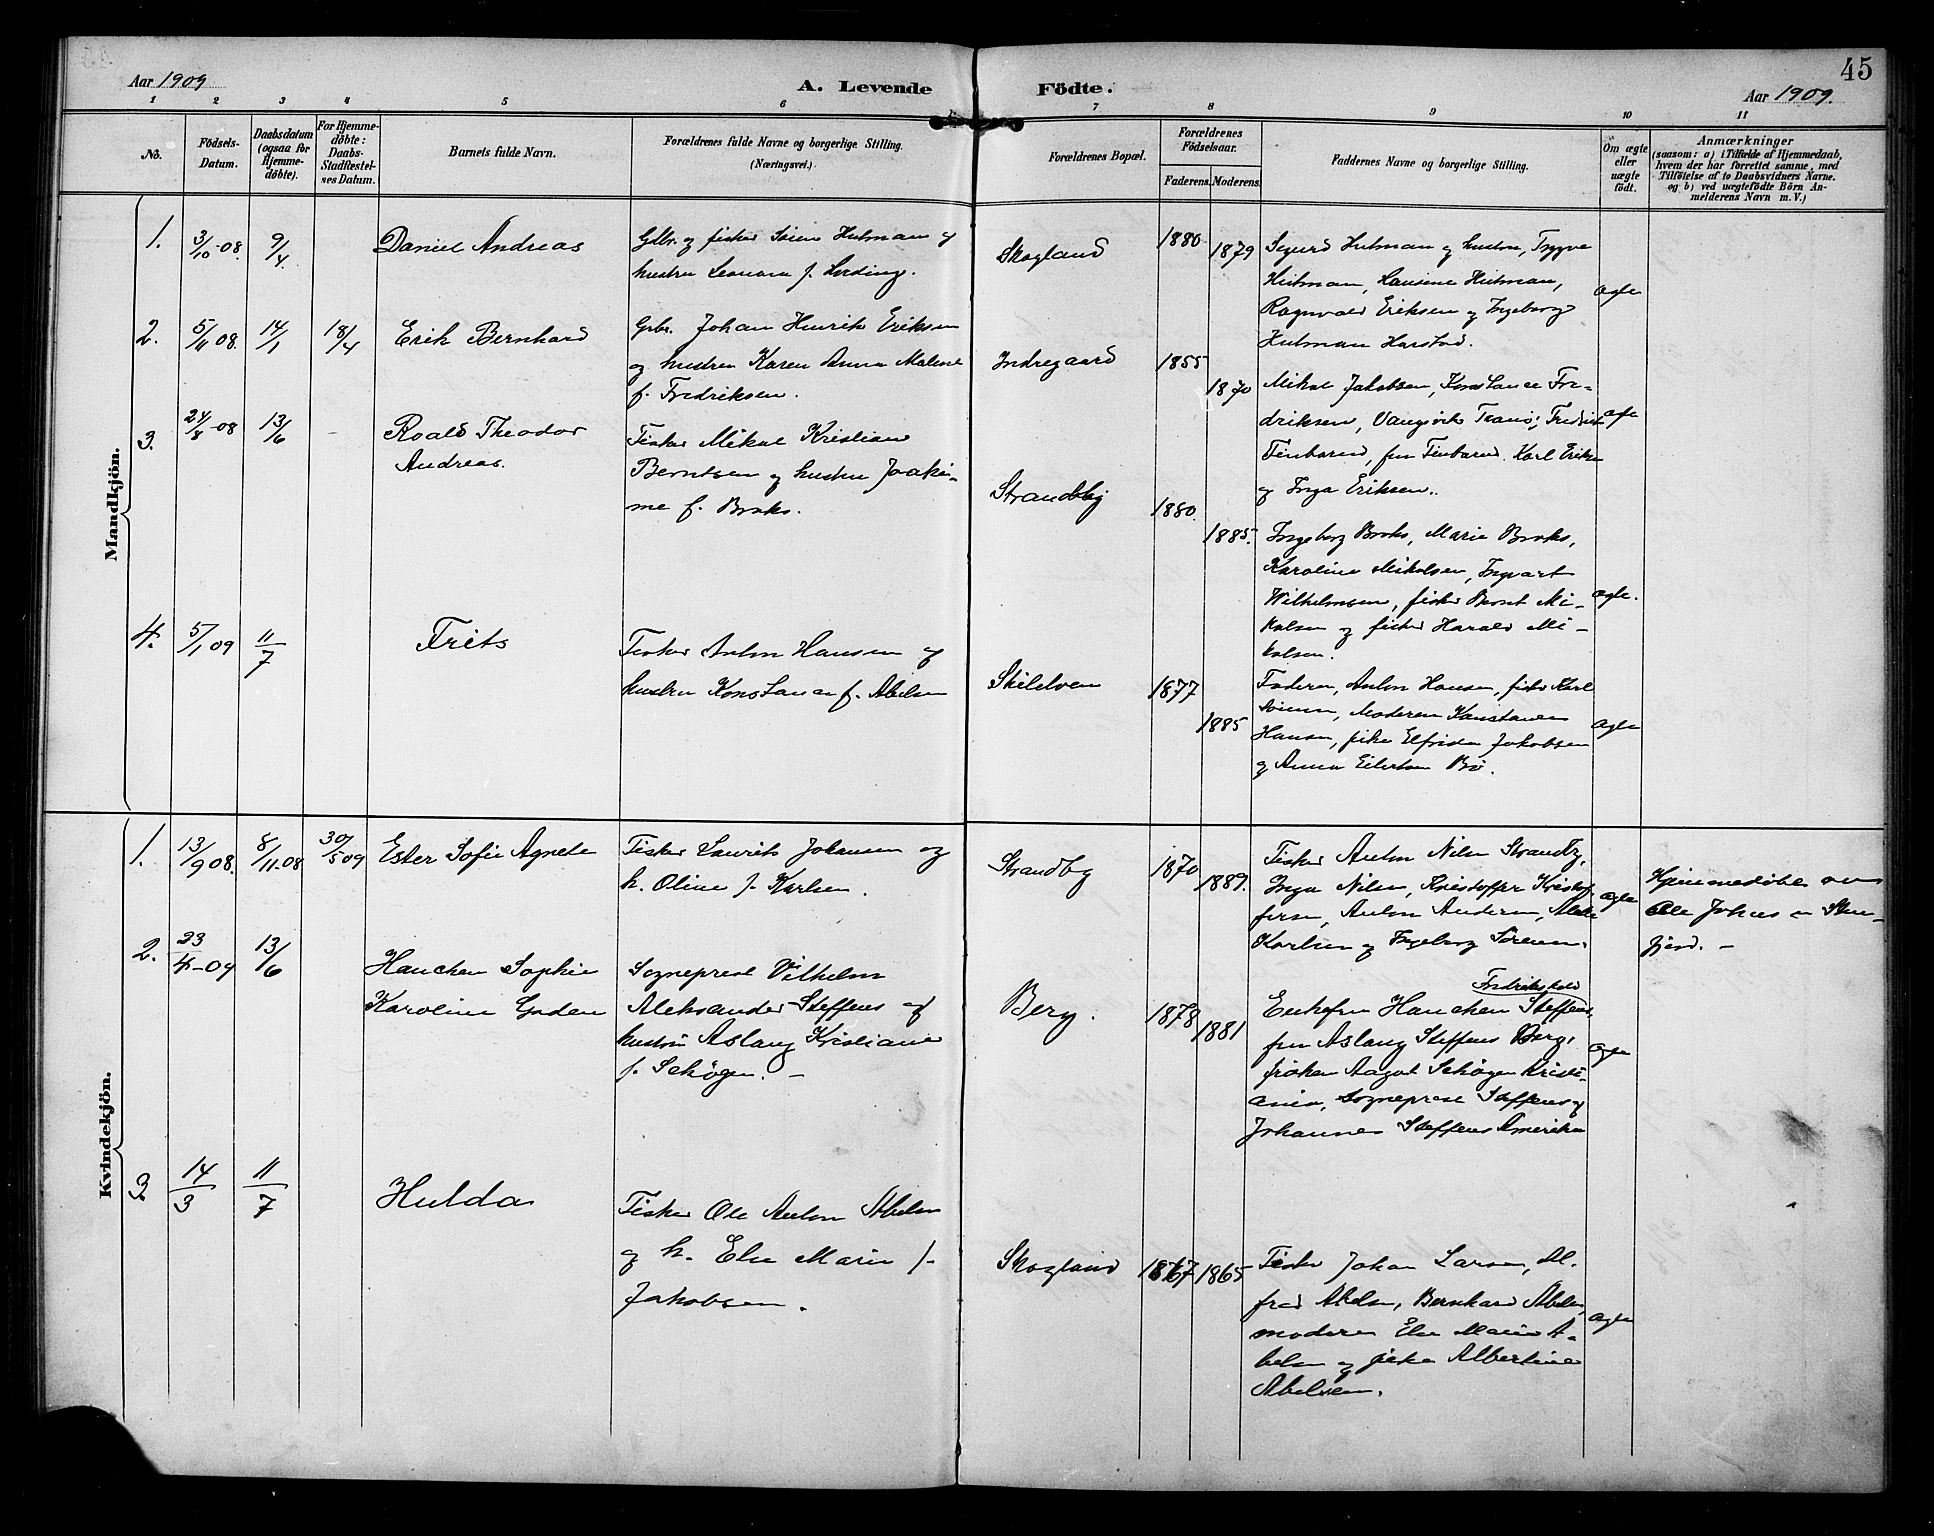 45
Aar 1909 A. Levende Födte. Aar 1909.
1 2 3 4 5 6 7 8 9 10 11
No. Födsels-Datum. Daabsdatum (ogsaa for Hjemmedöbte). For Hjemmedöbte: Daabs-Stadfæstelses Datum. Barnets fulde Navn. Forældrenes fulde Navne og borgerlige Stilling. (Næringsvei.) Forældrenes Bopæl. Forældrenes Födselsaar. Faderens. Moderens. Faddernes Navne og borgerlige Stilling. Om ægte eller uægte födt. Anmærkninger (saasom: a) i Tilfælde af Hjemmedaab, hvem der har forrettet samme, med Tilföielse af to Daabsvidners Navne. og b) ved uægtefödte Börn Anmelderens Navn m. V.)
Mandkjön.
1. 3/10-08. 9/4. Daniel Andreas
Gbr. og fisker Søren Hutman og
hustru Leonora f. Lording.
Skogland 1880 1879
Sigurd Hutman og hustru, Trygve
Hutman, Hansine Hutman,
Ragnvald Eriksen og Ingeborg
Hutman Harstad.
ægte
2. 5/11 08. 14/1 18/4 Erik Bernhard
Gbr. Johan Henrik Eriksen
og hustru Karen Anna Maline
f. Fredriksen.
Indregaard 1855 1870
Mikal Jakobsen, Konstance Fre-
driksen, Vangsvik Tranø, Fredrik
Finbaren, fru Finbaren. Karl Eriksen
og Inga Eriksen.
3. 24/8-08 13/6 - Roald Theodor
Andreas.
Fisker Mikal Kristian
Berntsen og hustru Joaki-
me f. Broks.
Strandby 1880. 1885.
Ingeborg Broks, Marie Broks,
Karoline Mikalsen, Ingvart
Wilhelmsen, fisker Bernt Mi-
kalsen og fisker Harald Mi-
kalsen.
ægte.
4. 5/1 09 11/7 Frits
Fisker Anton Hansen og
hustru Konstance f. Abelsen
1877 1885
Faderen, Anton Hansen, fisker Karl
Moderen Konstance
Hansen, pike Elfrida Jakobsen
og Anna Eilertsen Bø.
ægte
Kvindekjön.
1. 13/9 08. 8/11-08 30/5 09 Ester Sofie Agnete
Fisker Laurits Johansen og
h. Oline f. Karlsen.
Strandby 1870 1889.
Fisker Anton Nilsen Strandby,
Inga Nilsen, Kristoffer Kristof-
fersen, Anton Andersen,
Karlsen og Ingeborg Sørensen.
ægte
Hjemmedøbt av
Ole Johans
fjord. -
2. 23/4-09 13/6 Hanchen Sophie
Karoline Gaden
Sogneprest Vilhelm
Aleksander Steffens og
hustru Aslaug Kristiane
f. Schøgen. -
Berg. 1878 1881
Fredrikshald
Enkefru Hanchen Steffens,
fru Aslaug Steffens Berg,
frøken Aagot Schøgen Kristi-
ania, Sogneprest Steffens og
Johannes Steffens Amerika
ægte
3 14/3 11/7 Hulda
Fisker Ole Anton Abelsen
og h. Else Marie f.
Jakobsen.
Skogland 1867 1865
Fisker Johan Larsen, Al-
fred Abelsen, Bernhard Abelsen,
moderen Else Marie A-
belsen og pike Albertine
Abelsen.
ægte